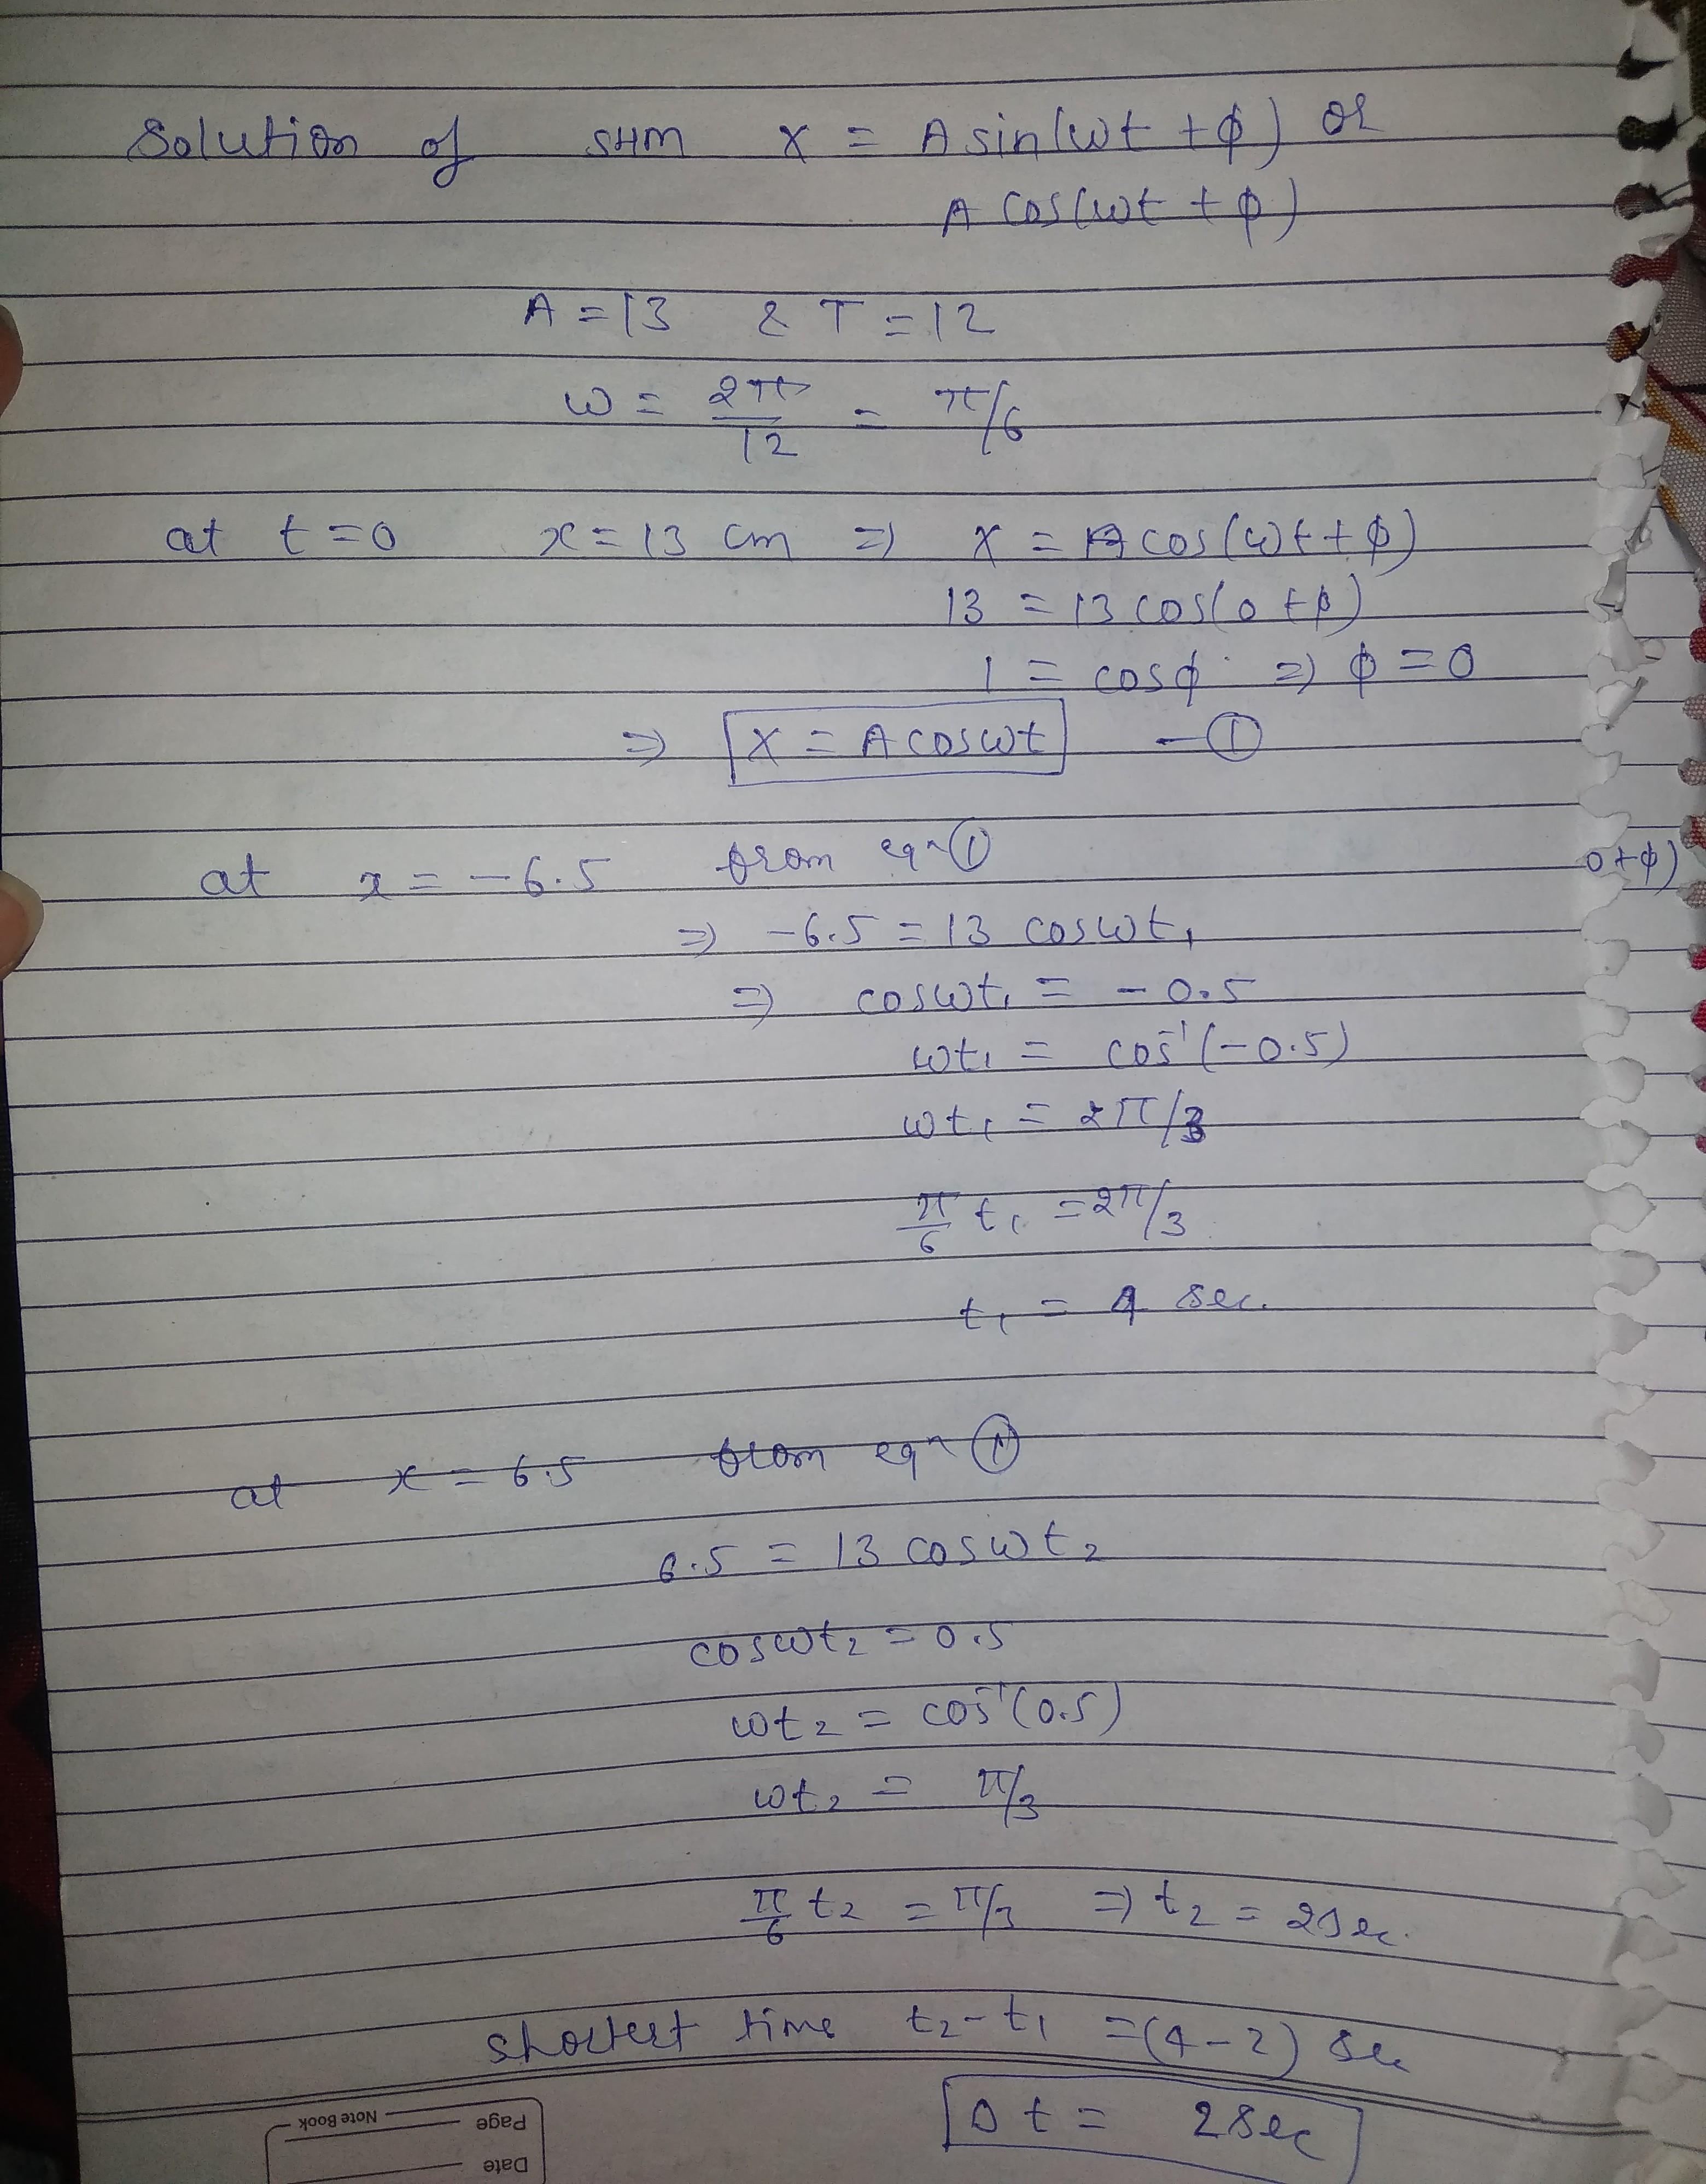 Solution of SHM x = A sin(ωt + ϕ) or
A cos(ωt + ϕ)
A = 13 & T = 12
ω = 2π/12 = π/6
at t = 0 x = 13 cm ⇒ x = A cos(ωt + ϕ)
13 = 13 cos(0 + ϕ)
1 = cosϕ ⇒ ϕ = 0
⇒ x = A cosωt — ①
at x = -6.5 from eqⁿ ①
0 + ϕ)
⇒ -6.5 = 13 cosωt₁
⇒ cosωt₁ = -0.5
ωt₁ = cos⁻¹(-0.5)
ωt₁ = 2π/3
π/6 t₁ = 2π/3
t₁ = 4 sec.
at x = 6.5 from eqⁿ ①
6.5 = 13 cosωt₂
cosωt₂ = 0.5
ωt₂ = cos⁻¹(0.5)
ωt₂ = π/3
π/6 t₂ = π/3 ⇒ t₂ = 2sec.
shortest time t₂ - t₁ = (4 - 2) sec
Δt = 2sec
Note Book
Page
Date